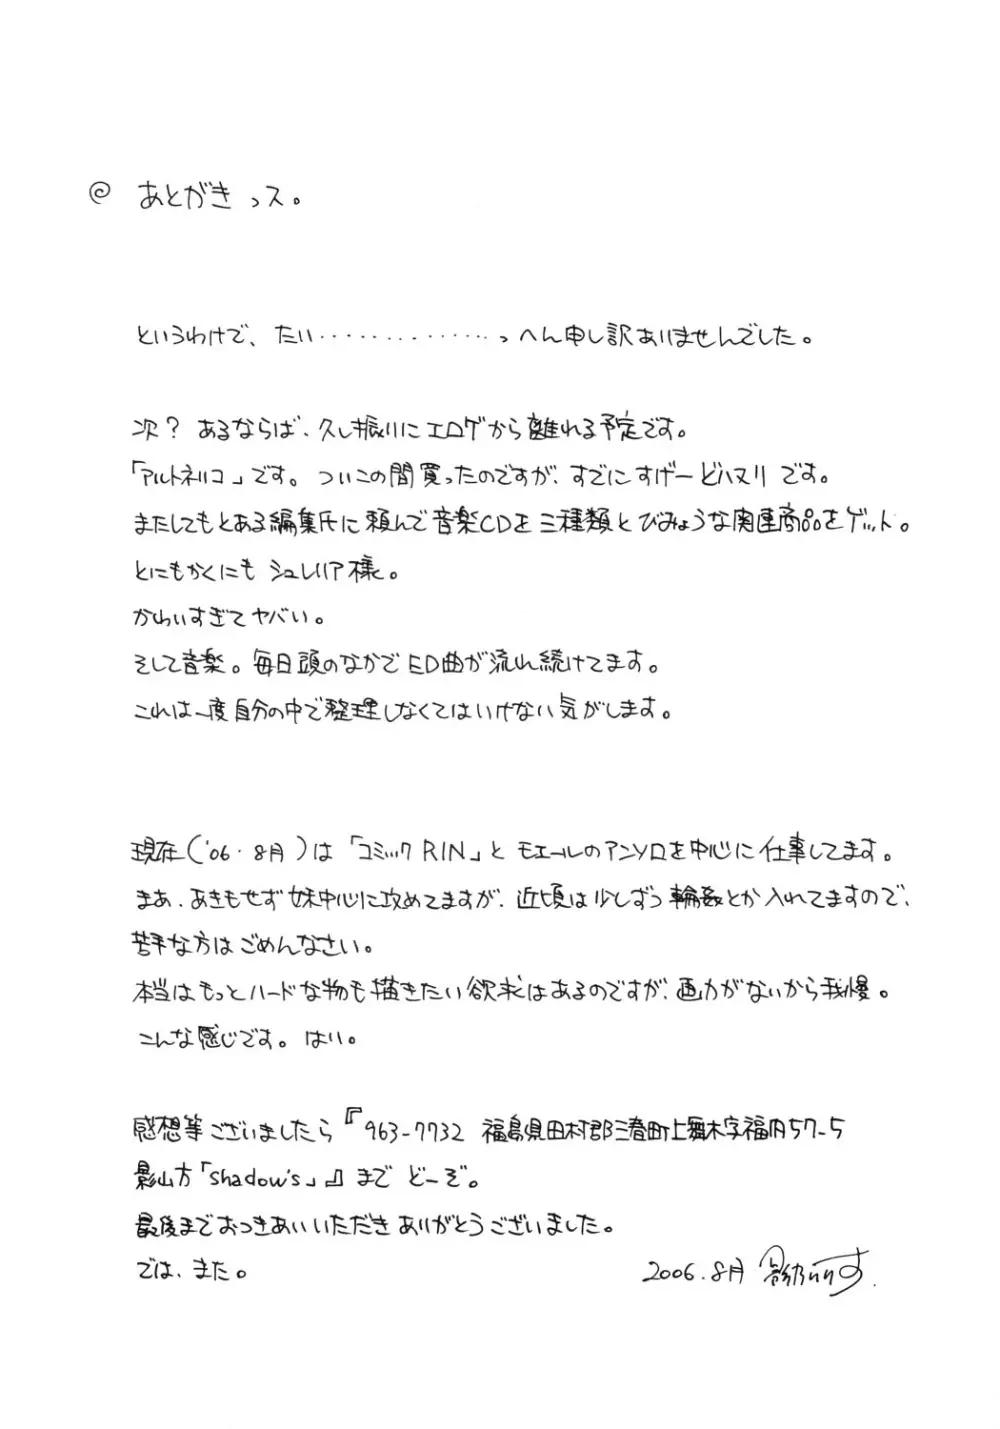 @ あとがきっス。
というわけで、たい・・・・・・・・・・・・・・っへん申し訳ありませんでした。
次？ あるならば、久し振りにエロゲから離れる予定です。
「アルトネリコ」です。ついこの間買ったのですが、すでにすげーどハマリです。
またしてもとある編集氏に頼んで音楽CDを三種類とびみょうな関連商品をゲット。
とにもかくにもシュレリア様。
かわいすぎてヤバい。
そして音楽。毎日頭のなかでED曲が流れ続けてます。
これは一度自分の中で整理しなくてはいけない気がします。
現在('06.8月)は「コミックRIN」とモエールのアンソロを中心に仕事してます。
まあ、あきもせず妹中心に攻めてますが、近頃は少しずつ輪姦とか入れてますので、
苦手な方はごめんなさい。
本当はもっとハードな物も描きたい欲求はあるのですが、画力がないから我慢。
こんな感じです。はい。
感想等ございましたら『963-7732 福島県田村郡三春町上舞木字福内57-5
影山方「Shadow's」』までどーぞ。
最後までおつきあいいただきありがとうございました。
では、また。
2006.8月